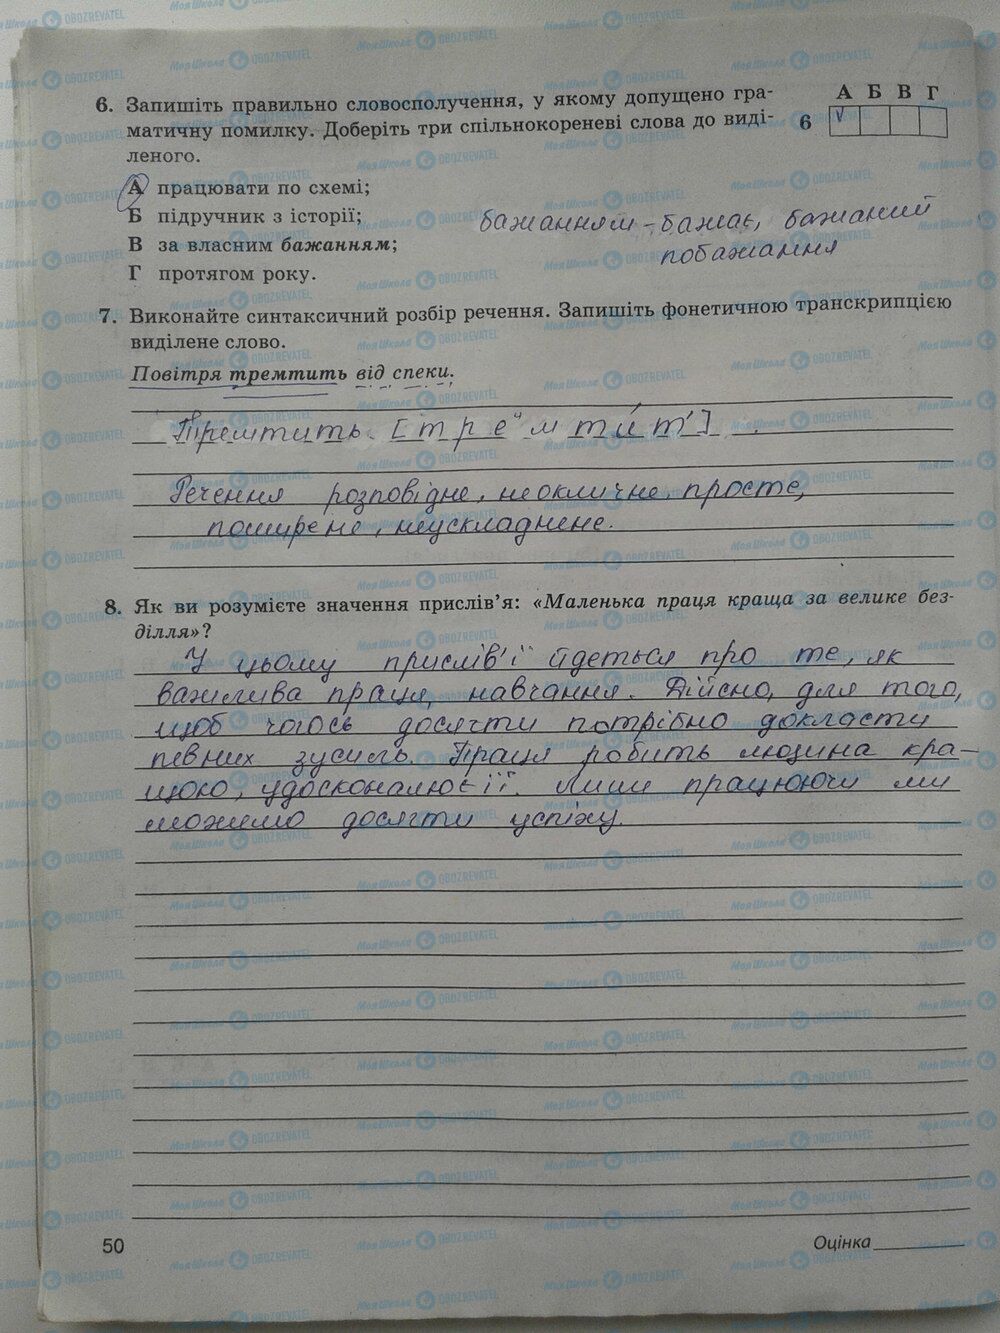 6. Запишіть правильно словосполучення, у якому допущено гра-
матичну помилку. Доберіть три спільнокореневі слова до виді-
леного.
А Б В Г
6 V
А працювати по схемі;
Б підручник з історії;
В за власним бажанням;
Г протягом року.
бажанням - бажає, бажаний
побажання
7. Виконайте синтаксичний розбір речення. Запишіть фонетичною транскрипцією
виділене слово.
Повітря тремтить від спеки.
Тремтить [тре^и мти́т']
Речення розповідне, неокличне, просте,
поширене, неускладнене.
8. Як ви розумієте значення прислів'я: «Маленька праця краща за велике без-
ділля»?
У цьому прислів'ї йдеться про те, як
важлива праця, навчання. Дійсно, для того,
щоб чогось досягти потрібно докласти
певних зусиль. Праця робить людина кра-
щою, удосконалює її. Лиш працюючи ми
можимо досягти успіху.
50
Оцінка
МояШкола OBOZREVATEL